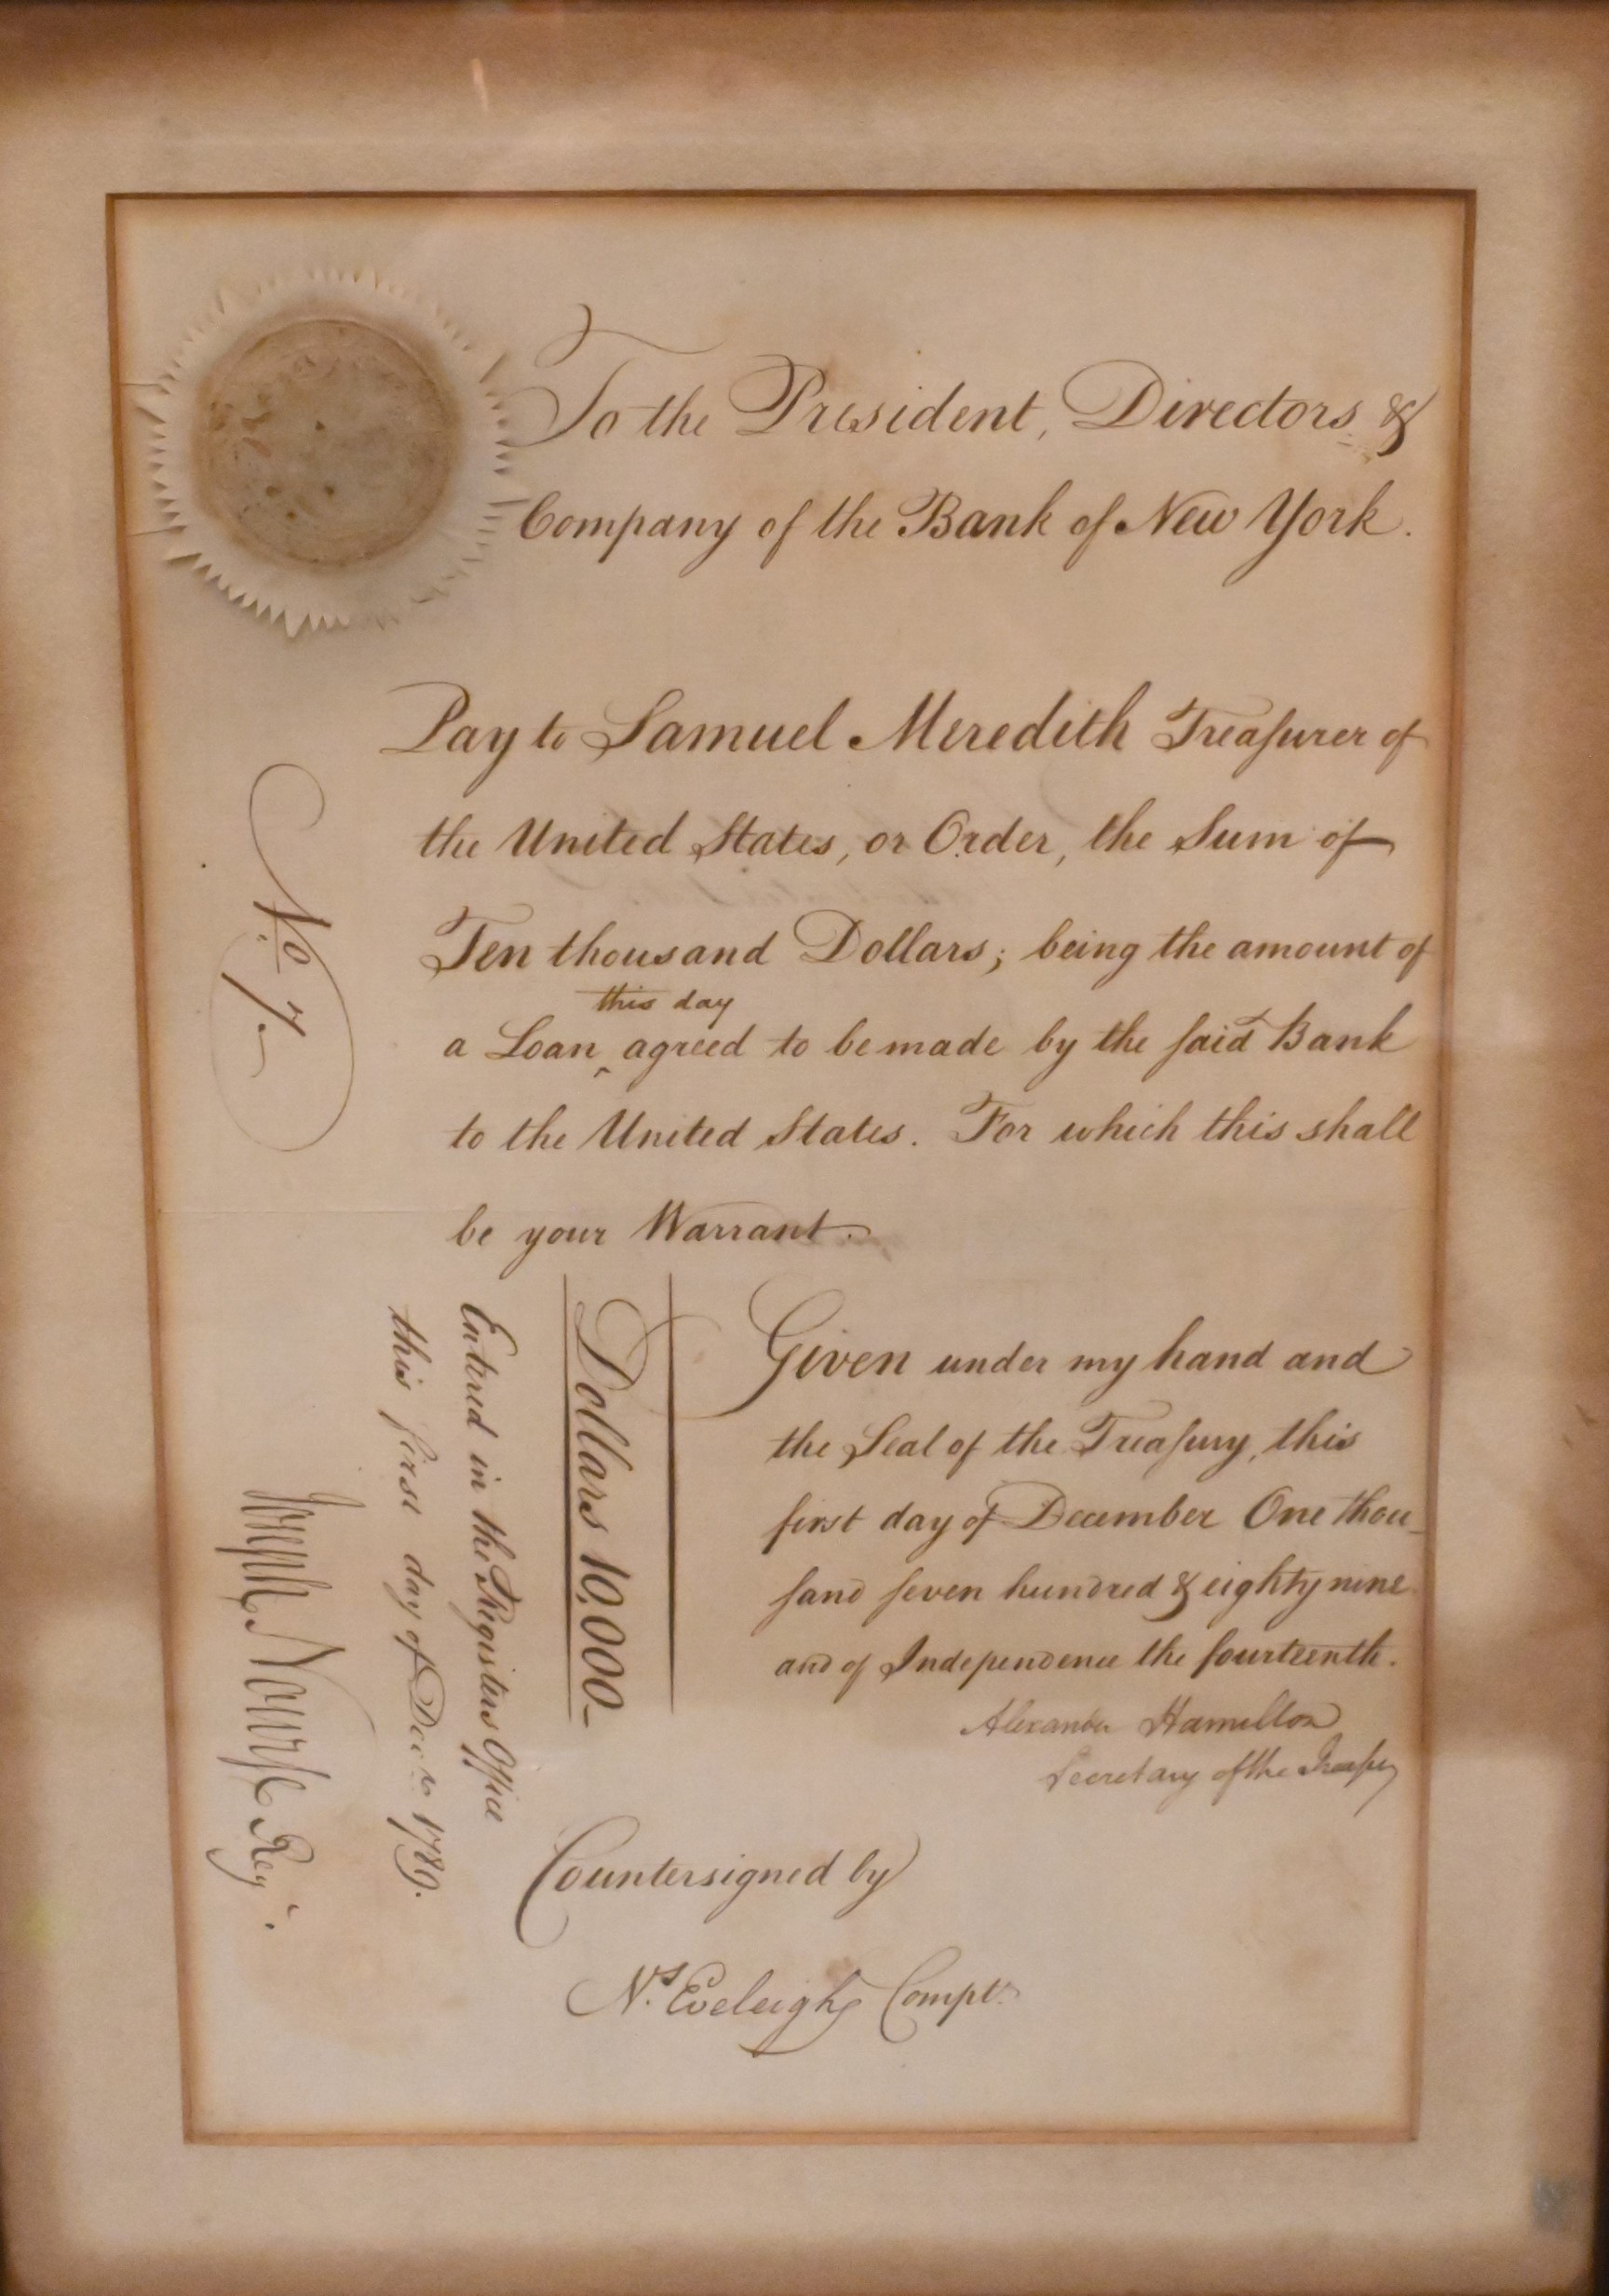 To the President, Directors &
Company of the Bank of New York.
Pay to Samuel Meredith Treaſurer of
the United States, or Order, the Sum of
Ten thousand Dollars; being the amount of
this day
a Loan ‸ agreed to be made by the ſaid Bank
to the United States. For which this shall
be your Warrant.
No 7
Dollars 10,000
Entered in the Registers Office
this first day of Decr. 1789.
Joseph Nourse Regr.
Given under my hand and
the Seal of the Treaſury, this
first day of December One thou-
ſand ſeven hundred & eighty nine
and of Independence the fourteenth.
Alexander Hamilton
Secretary of the Treaſury
Countersigned by
Ns. Eveleigh Compt.